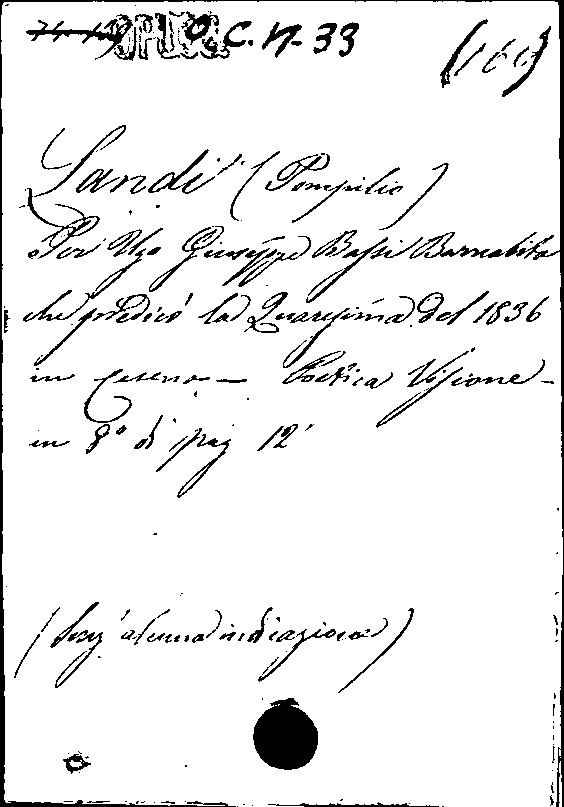 OPUSC. O.C.N-33
Landi (Pompilio)
Per Ugo Giuseppe Bassi Barnabita
che predicò la Quaresima del 1836
in Cesena — Poetica Visione —
in 8° di pag 12
(Senz'alcuna indicazione)